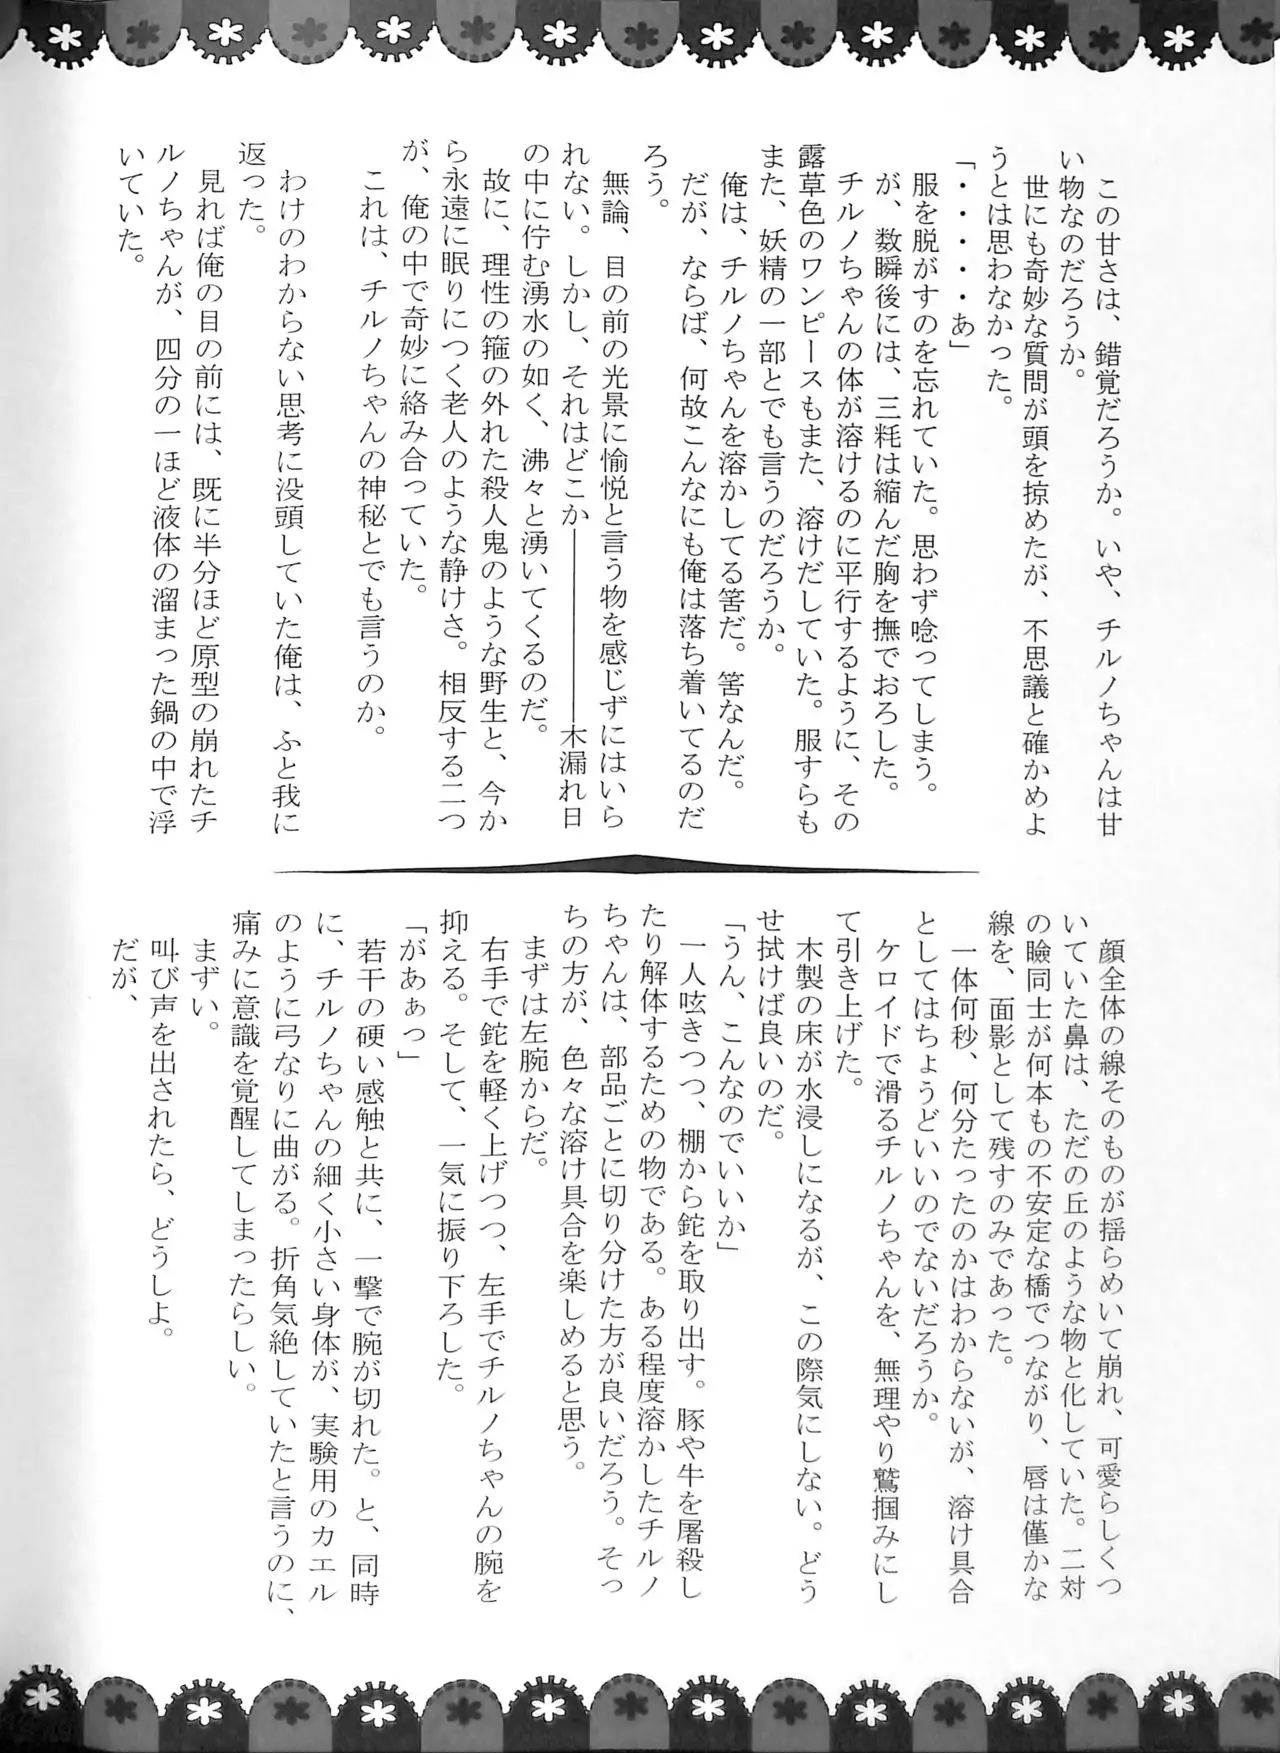 この甘さは、錯覚だろうか。いや、チルノちゃんは甘
い物なのだろうか。
　世にも奇妙な質問が頭を掠めたが、不思議と確かめよ
うとは思わなかった。
「・・・・・あ」
　服を脱がすのを忘れていた。思わず唸ってしまう。
　が、数瞬後には、三粍は縮んだ胸を撫でおろした。
　チルノちゃんの体が溶けるのに平行するように、その
露草色のワンピースもまた、溶けだしていた。服すらも
また、妖精の一部とでも言うのだろうか。
　俺は、チルノちゃんを溶かしてる筈だ。筈なんだ。
　だが、ならば、何故こんなにも俺は落ち着いてるのだ
ろう。
　無論、目の前の光景に愉悦と言う物を感じずにはいら
れない。しかし、それはどこか――――――木漏れ日
の中に佇む湧水の如く、沸々と湧いてくるのだ。
　故に、理性の箍の外れた殺人鬼のような野生と、今か
ら永遠に眠りにつく老人のような静けさ。相反する二つ
が、俺の中で奇妙に絡み合っていた。
　これは、チルノちゃんの神秘とでも言うのか。
　わけのわからない思考に没頭していた俺は、ふと我に
返った。
　見れば俺の目の前には、既に半分ほど原型の崩れたチ
ルノちゃんが、四分の一ほど液体の溜まった鍋の中で浮
いていた。
　顔全体の線そのものが揺らめいて崩れ、可愛らしくつ
いていた鼻は、ただの丘のような物と化していた。二対
の瞼同士が何本もの不安定な橋でつながり、唇は僅かな
線を、面影として残すのみであった。
　一体何秒、何分たったのかはわからないが、溶け具合
としてはちょうどいいのでないだろうか。
　ケロイドで滑るチルノちゃんを、無理やり鷲掴みにし
て引き上げた。
　木製の床が水浸しになるが、この際気にしない。どう
せ拭けば良いのだ。
「うん、こんなのでいいか」
　一人呟きつつ、棚から鉈を取り出す。豚や牛を屠殺し
たり解体するための物である。ある程度溶かしたチルノ
ちゃんは、部品ごとに切り分けた方が良いだろう。そっ
ちの方が、色々な溶け具合を楽しめると思う。
　まずは左腕からだ。
　右手で鉈を軽く上げつつ、左手でチルノちゃんの腕を
抑える。そして、一気に振り下ろした。
「があぁっ」
　若干の硬い感触と共に、一撃で腕が切れた。と、同時
に、チルノちゃんの細く小さい身体が、実験用のカエル
のように弓なりに曲がる。折角気絶していたと言うのに、
痛みに意識を覚醒してしまったらしい。
　まずい。
　叫び声を出されたら、どうしよ。
　だが、